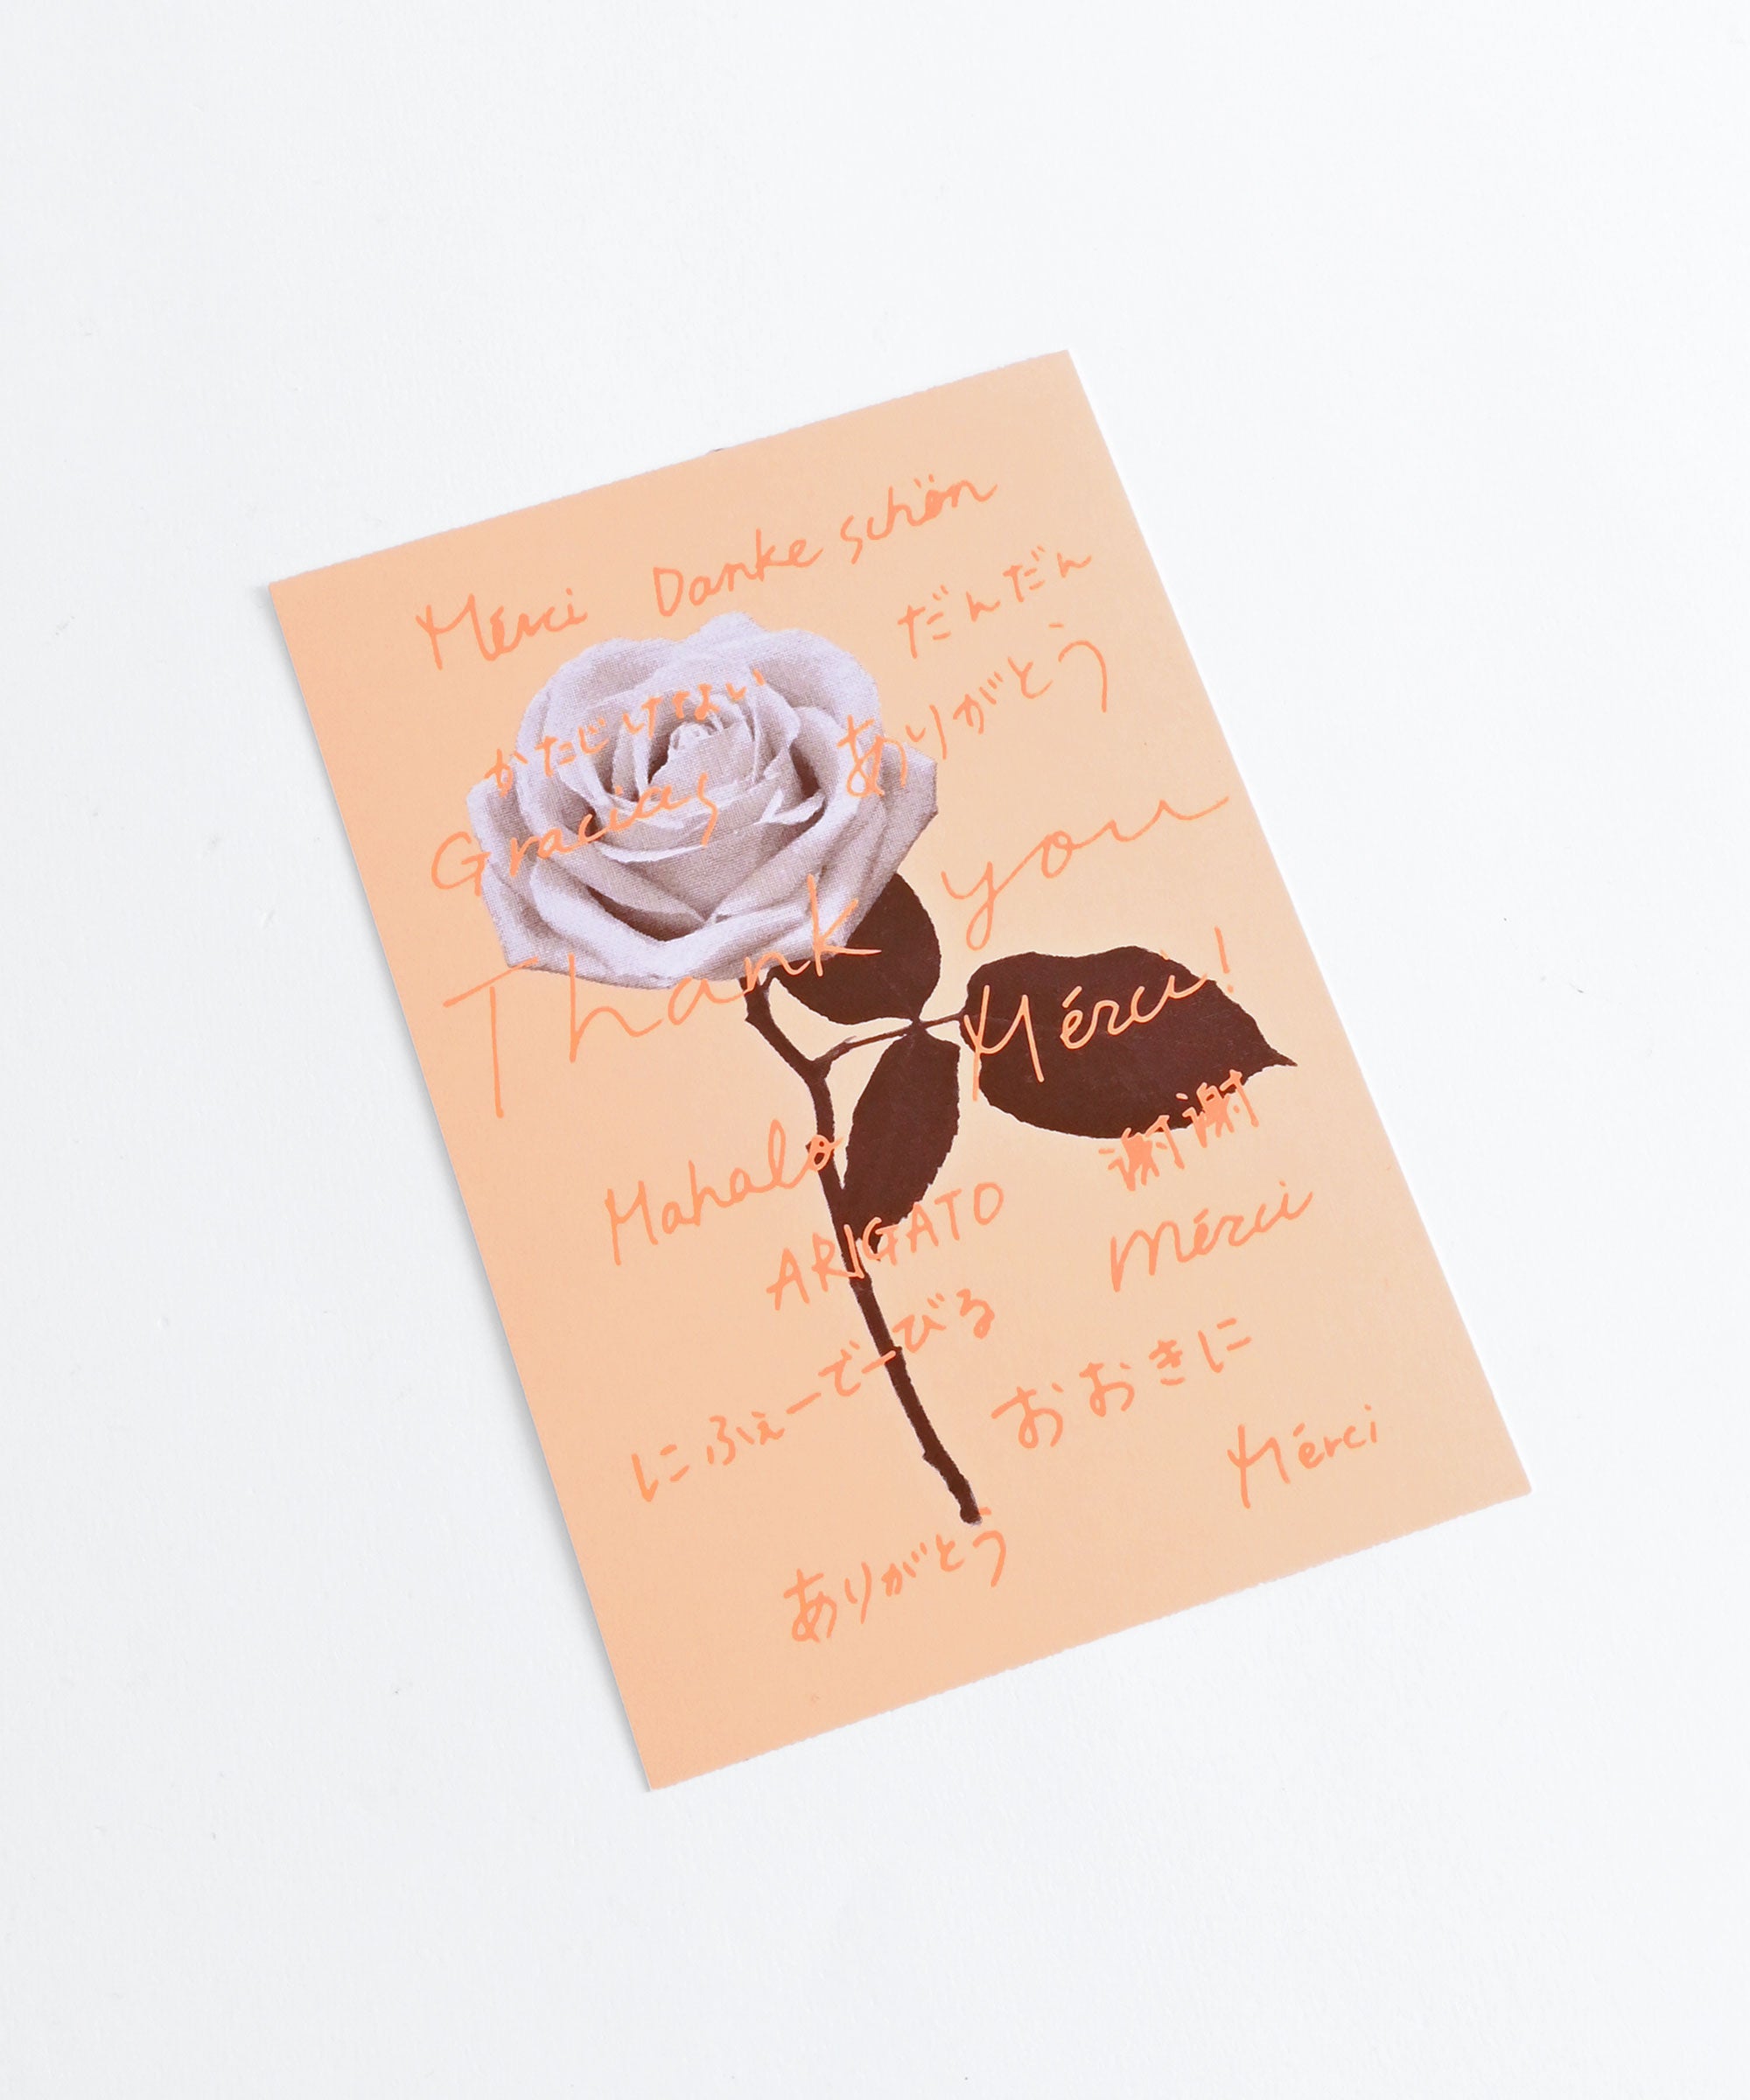 Mérci Danke schön
だんだん
かたじけない
ありがとう
Gracias
Thank you
Mérci!
Mahalo
謝謝
ARIGATO
Mérci
にふぇーでーびる
おおきに
Mérci
ありがとう